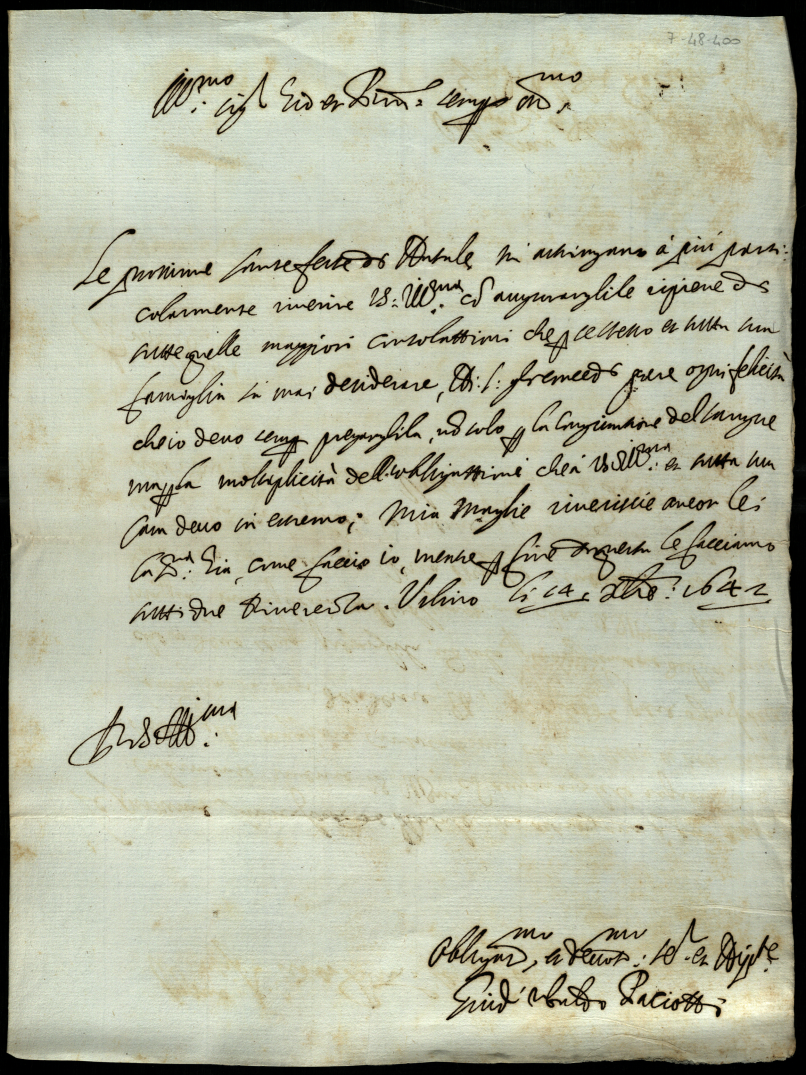 7-48-400
Ill.mo sig.r Zio et Pron.e sempre oss.mo
Le prossime sante feste di Natale mi astringano à più parti:
colarmente riverire V.S. Ill.ma co augurarglile ripiene di
tutte quelle maggiori consolattioni che p se stesso et tutta sua
famiglia sa mai desiderare, N. S. gle conceda pure ogni felicità
che io devo semp pregarglila, nō solo p la congiuntione del sangue
ma p la moltiplicità dell'obbligattioni che à V.S. Ill.ma et tutta sua
Casa devo in estremo; Mia Moglie riverisscie ancor lei
la S.ra Zia, come faccio io, mentre p fine di questa le facciamo
tutti due Riverenza. Urbino li 14 Xbre 1642
Di V.S. Ill.ma
Obbligat.mo et devot.mo Se.r et Nipte
Guid' Ubaldo Paciotti